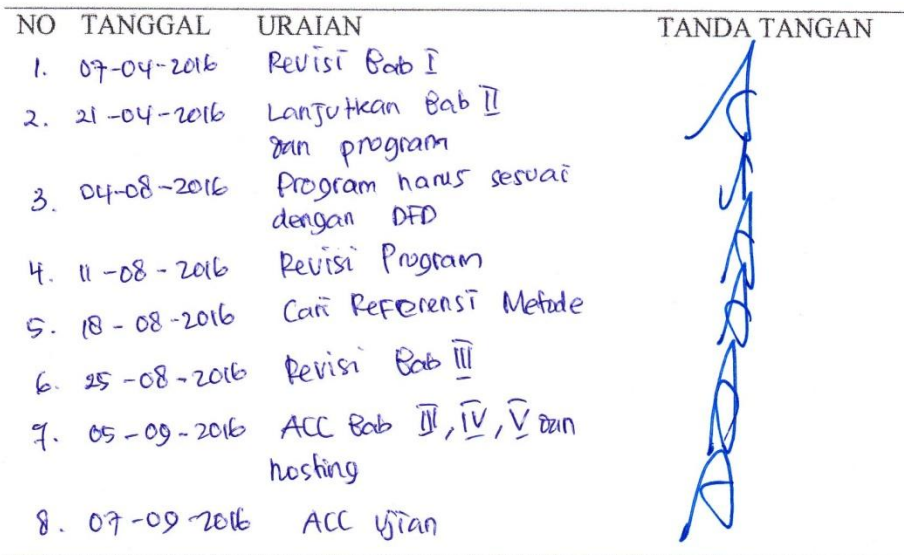 NO TANGGAL URAIAN TANDA TANGAN
1. 07-04-2016 Revisi Bab I
2. 21-04-2016 Lanjutkan Bab II
dan program
3. 04-08-2016 Program harus sesuai
dengan DFD
4. 11-08-2016 Revisi Program
5. 18-08-2016 Cari Referensi Metode
6. 25-08-2016 Revisi Bab III
7. 05-09-2016 ACC Bab III, IV, V dan
hosting
8. 07-09-2016 ACC Ujian